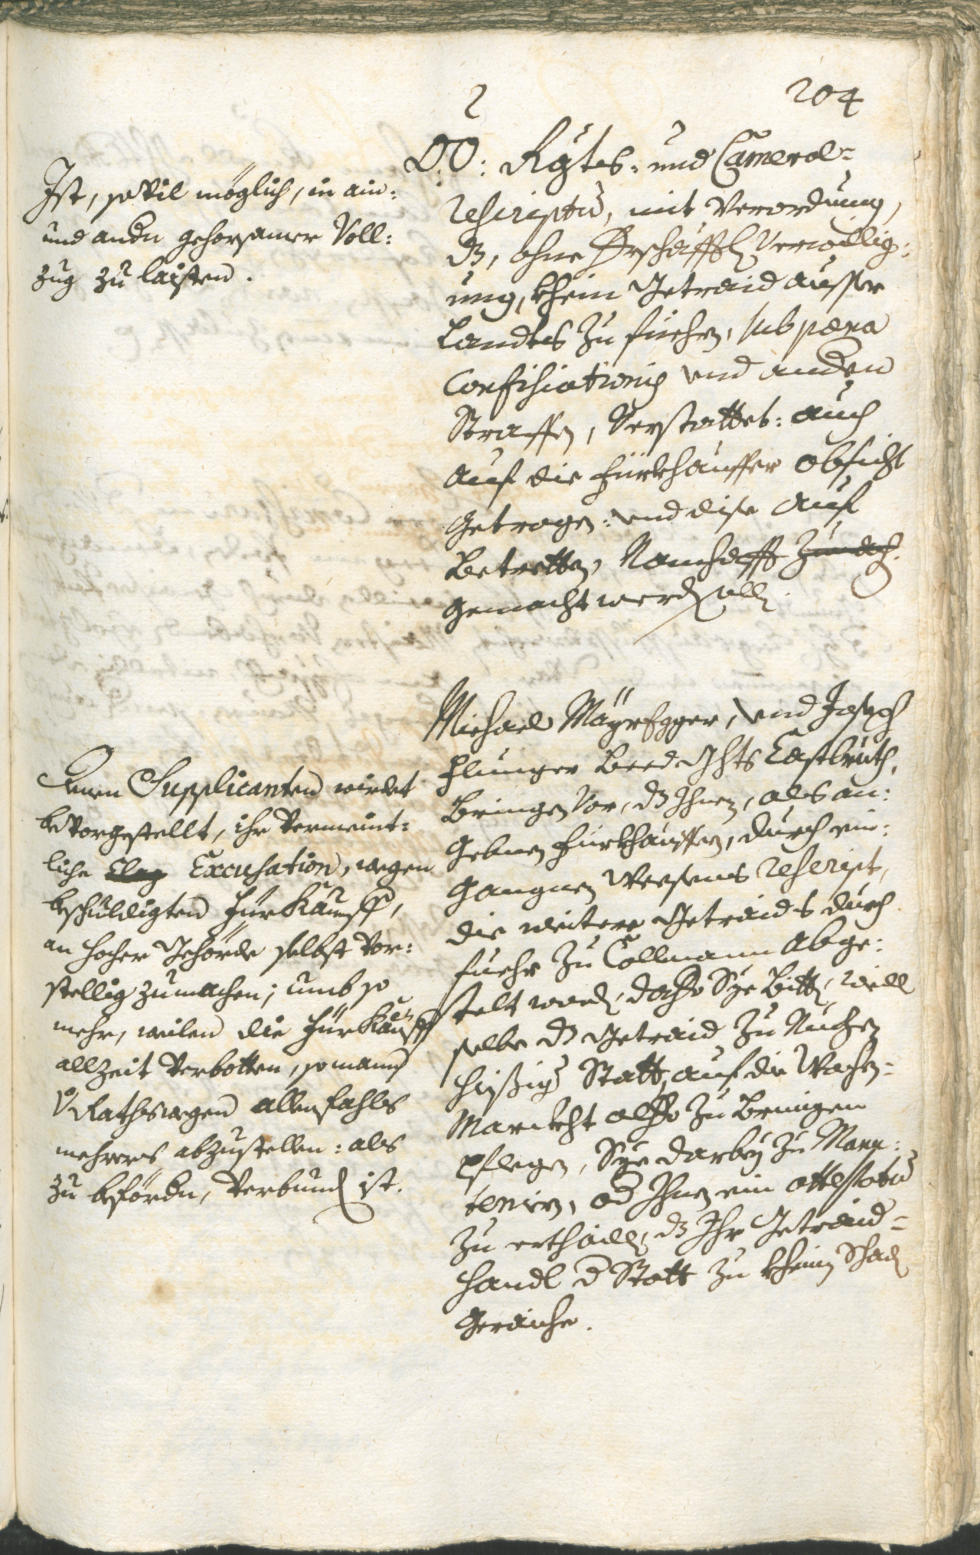 204
2
Ist, so vil möglich, in ain:
und andn gehorsamer Voll:
zug zu laisten.
OÖ: Rgts- und Cameral-
rescriptũ, mit Verordnung,
dz, ohne Verwillig:
ung, khein Getraid ausser
Landtes zu füehren, sub pæna
Confiscationis und anden
Straffen, Verstattet: auch
auf die Fürkhäuffer obsicht
getragen: und dise auf
Betretten, Namhafft
gemacht werden solle.
Michael Mäyregger, und Joseph
Flunger Beed Ghts Castlruth,
Bringen Vor, dz Ihnen, als an:
gebnen Fürkhäuffern, durch ein:
gangnes Weesens rescript,
die weitere Getraids durch
fuehr zu Collmann Abge:
stelt word, daher Sye Bitten, weill
selbe dz Getraid zu Nuzen
hiesiger Statt, auf die Wochen-
Marckht alher zu Bringen
pflegen, Sye darbey zu Manu:
teniern, od Ihnen ein attestatũ
zu erthaillen, dz Ihr Getraid-
handl d Statt zu kheinen Schaden
Geraiche.
Denen Supplicanten wirdet
bevorgestellt, ihr vermeint:
liche Excusation, wegen
beschuldigten Fürkauff,
an hocher Gehörde selbst vor:
stellig zumachen; umb so
mehr, weilen die Fürkäuff
allzeit verbotten, so mann
V. Rathswegen allenfahls
mehrers abzustellen: als
zu befördn, verbunden ist.